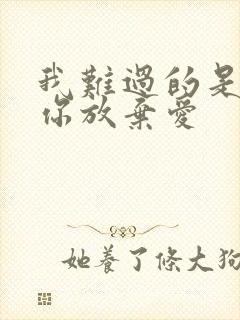 我難過的是
你放棄愛
她養了條大狗